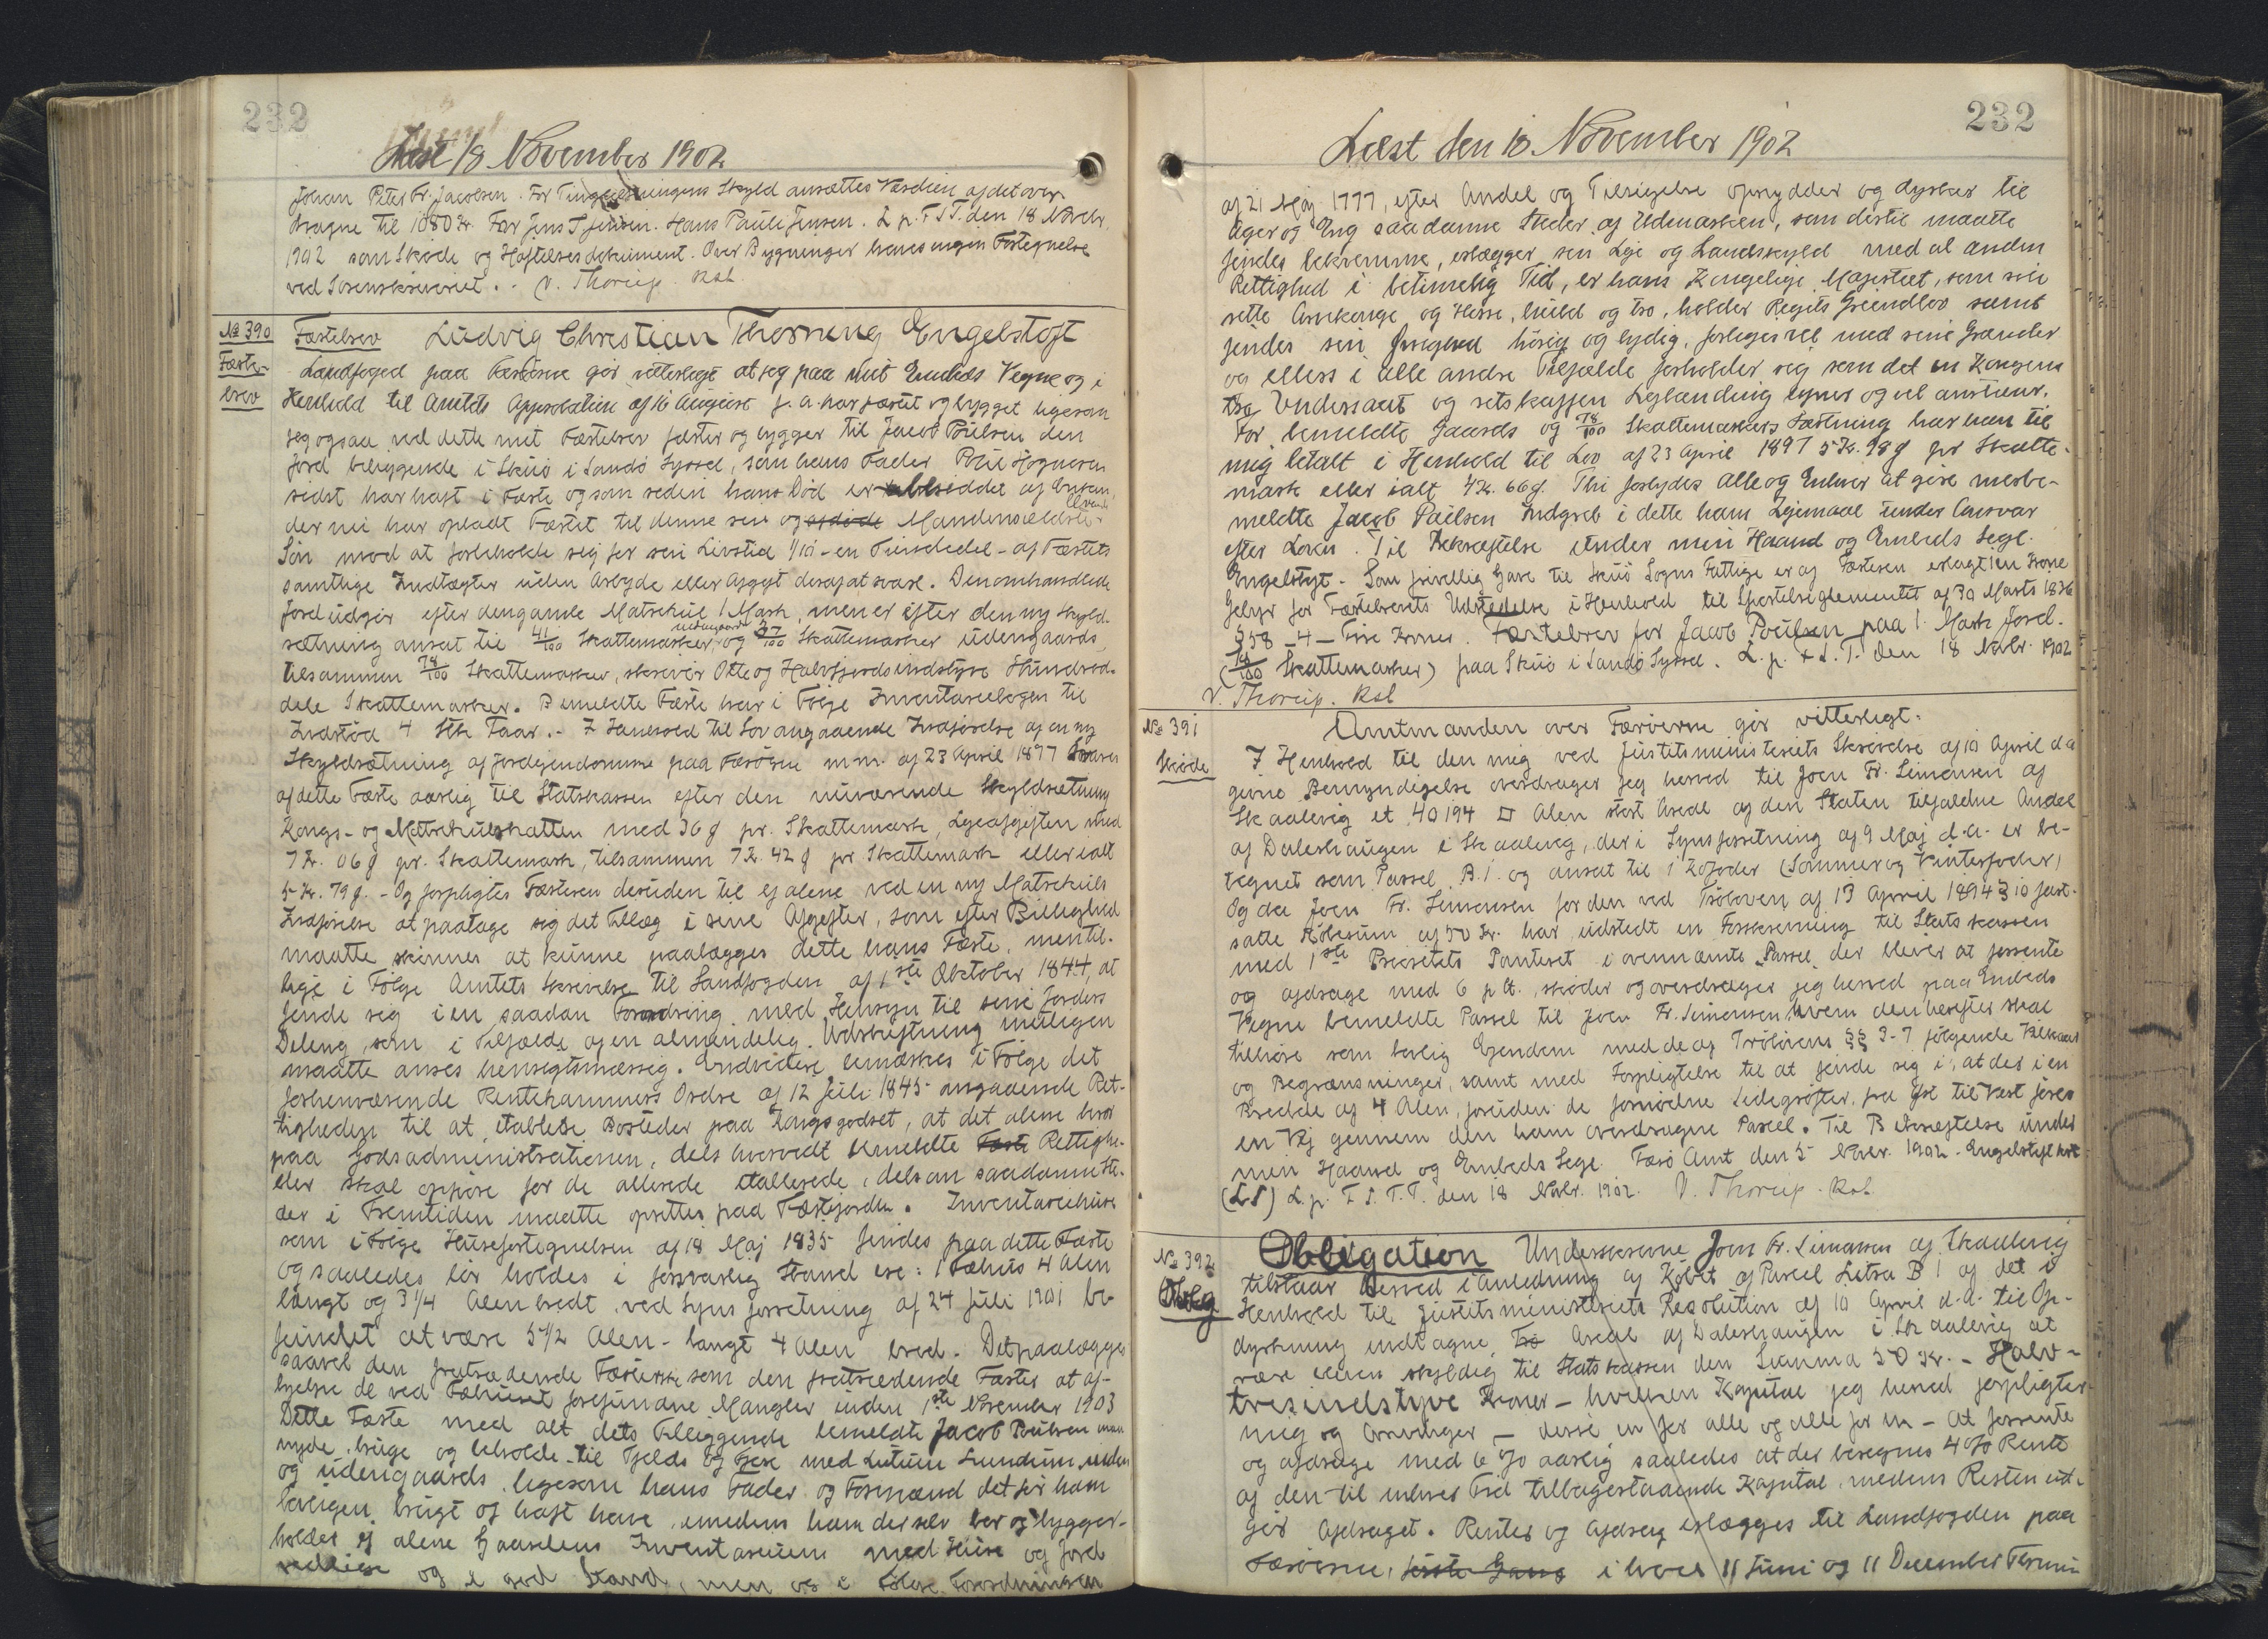 232
Læst 18 November 1902
Johan Peter Fr. Jacobsen. For Tinglæsningens Skyld ansættes Værdien af det over-
dragne til 1080 Kr. For Jens T Jensen. Hans Pauli Jensen. L. p. F. S. T. den 18 Novbr.
1902 som Skøde og Hæftelsesdokument. Over Bygninger haves ingen Fortegnelse
ved Sorenskriveriet. V. Thorup. Kst
No 390
Fæste-
brev
Fæstebrev Ludvig Christian Thorning Engelstoft
Landfoged paa Færøerne gør vitterligt at jeg paa mit Embeds Vegne og i
Henhold til Amtets Approbation af 16 August f. a. har fæstet og bygget ligesom
jeg ogsaa ved dette mit Fæstebrev fæster og bygger til Jacob Poulsen den
Jord beliggende i Skuø i Sandø Syssel, som hans Fader Poul
sidst har haft i Fæste og som siden hans Død er besiddet af Enken,
der nu har opladt Fæstet til denne sin og Mandens ældste
Søn mod at forbeholde sig for sin Livstid 1/10 - en Tiendedel - af Fæstets
samtlige Indtægter uden Arbejde eller Afgift deraf at svare. Den omhandlede
Jord udgør efter den gamle Matrikul 1 Mark, men er efter den ny Skyld-
sætning ansat til 41/100 Skattemarker indengaards og 37/100 Skattemarker udengaards,
tilsammen 78/100 Skattemarker, skriver Otte og Halvfjerdsindstyve Hundrede-
dele Skattemarker. Bemeldte Fæste har i Følge Inventariebogen til
Indstød 4 Stk Faar. - I Henhold til Lov angaaende Indførelse af en ny
Skyldsætning af Jordejendomme paa Færøerne m.m. af 23 April 1897 svares
af dette Fæste aarlig til Statskassen efter den nuværende Skyldsætning
Kongs- og Matrikulskatten med 36 ø pr. Skattemark, Lejeafgiften med
7 Kr. 06 ø pr. Skattemark, tilsammen 7 Kr. 42 ø pr Skattemark eller ialt
5 Kr. 79 ø. - Og forpligtes Fæsteren desuden til ej alene ved en ny Matrikuls
Indførelse at paatage sig det Tillæg i sine Afgifter, som efter Billighed
maatte skønnes at kunne paalægges dette hans Fæste, men til-
lige i Følge Amtets Skrivelse til Landfogden af 1ste Oktober 1844, at
finde sig i en saadan Forandring med Hensyn til sine Jorders
Deling, som i Tilfælde af en almindelig Udskiftning muligen
maatte anses hensigtsmæssig. Endvidere bemærkes i Følge det
forhenværende Rentekammers Ordre af 12 Juli 1845 angaaende Ret-
tigheden til at etablere Bosteder paa Kongsgodset, at det alene beror
paa Godsadministrationen, dels hvorvidt bemeldte Rettighe-
der skal ophøre for de allerede etablerede, dels om saadanne Ste-
der i Fremtiden maatte oprettes paa Fæstejorden. Inventariehuse
som i Følge Husefortegnelsen af 18 Maj 1835 findes paa dette Fæste
og saaledes bør holdes i forsvarlig Stand ere: 1 Fæhus 4 Alen
langt og 3 1/4 Alen bredt ved Synsforretning af 24 Juli 1901 be-
fundet at være 5 1/2 Alen - langt 4 Alen bred. Det paalægges
saavel den fratrædende Fæsterske som den tiltrædende Fæster at af-
hjelpe de ved Fæhuset forefundne Mangler inden 1ste November 1903
Dette Fæste med alt dets Tilliggende bemeldte Jacob Poulsen maa
nyde, bruge og beholde til Fjelds og Fjære med Lutum Lundum, inden
og udengaards ligesom hans Fader og Formænd det før ham
lovligen brugt og haft have, imedens han derselv bor og bygger,
holder ej alene Gaardens Inventarium med Huse og Jord
vedlige og i god Stand, men og i Følge Forordningen
232
Læst den 18 November 1902
af 21 Maj 1777, efter Andel og Tilsigelse oprydder og dyrker til
Ager og Eng saadanne Steder af Udmarken, som dertil maatte
findes bekvemme, erlægger sin Leje og Landskyld med al anden
Rettighed i betimelig Tid, er hans Kongelige Majestæt, som sin
rette Arvekonge og Herre, huld og tro, holder Rigets Grundlov samt
findes sin hørig og lydig, forliges vel med sine Grander
og ellers i alle andre Tilfælde forholder sig som det en Kongens
tro Undersaat og retskaffen Lejlænding egner og vel anstaar.
For bemeldte Gaards og 78/100 Skattemarkers Fæstning har han til
mig betalt i Henhold til Lov af 23 April 1897 5 Kr. 98 ø pr Skatte-
mark eller ialt 4 Kr. 66 ø. Thi forbydes Alle og Enhver at gøre mesbe-
meldte Jacob Poulsen Indgreb i dette ham Lejemaal under Ansvar
efter Loven. Til Bekræftelse under min Haand og Embeds Segl.
Engelstoft. Som frivillig Gave til Skuø Sogns Fattige er af Fæsteren erlagt 1 en Krone
Gebyr for Fæstebrevets Udstedelse i Henhold til Sportelreglementet af 30 Marts 1836
§ 58 - 4 - Fire Kroner. Fæstebrev for Jacob Poulsen paa 1 Mark Jord.
(78/100 Skattemarker) paa Skuø i Sandø Syssel. L. p. F. S. T. den 18 Novbr. 1902
V. Thorup. Kst
No 391
Skøde
Amtmanden over Færøerne gør vitterligt:
I Henhold til den mig ved Justitsministeriets Skrivelse af 10 April d.a
givne Bemyndigelse overdrager jeg herved til Joen Fr. Simonsen af
Skaalevig et 40194 □ Alen stort Areal af den Staten tilfaldne Andel
af Daleshaugen i Skaalevig, der i Synsforretning af 9 Maj d.a. er be-
tegnet som Parsel B.1. og ansat til 1 Kofoder (Sommer og Vinterfoder)
Og da Joen Fr. Simonsen for den ved Trøloven af 13 April 1894 § 10 fast-
satte Købesum af 50 Kr. har udstedt en Forskrivning til Statskassen
med 1ste Prioritets Panteret i ovennævnte Parsel, der bliver at forrente
og afdrage med 6 p Ct., skøder og overdrager jeg herved paa Embeds
Vegne bemeldte Parsel til Joen Fr. Simonsen hvem den herefter skal
tilhøre som lovlig Ejendom med de af Trølovens §§ 3-7 følgende Vilkaar
og Begrænsninger, samt med Forpligtelse til at finde sig i, at der i en
Bredde af 4 Alen, foruden de fornødne Ledegrøfter, fra Øst til Vest føres
en Vej gennem den ham overdragne Parcel. Til Bekræftelse under
min Haand og Embeds Segl. Færø Amt den 5 Novbr. 1902. Engelstoft kst
(LS) L. p. F S. T. T. den 18 Novbr. 1902. V. Thorup. Kst
No 392
Oblig
Obligation Underskrevne Joen Fr. Simonsen af Skaalevig
tilstaar herved i Anledning af Købet af Parcel Litra B 1 af det i
Henhold til Justitsministeriets Resolution af 10 April d.a. til Op-
dyrkning indtagne Areal af Daleshaugen i Skaalevig at
være bleven skyldig til Statskassen den Summa 50 Kr. - Halv-
tresindstyve Kroner - hvilken Kapital jeg herved forpligter
mig og Arvinger - disse en for alle og alle for en - at forrente
og afdrage med 6 % aarlig saaledes at der beregnes 4 % Rente
af den til enhver Tid tilbagestaaende Kapital, medens Resten ud-
gør Afdraget. Renter og Afdrag erlægges til Landfogden paa
Færøerne, første Gang i hver 11 Juni og 11 December Termin